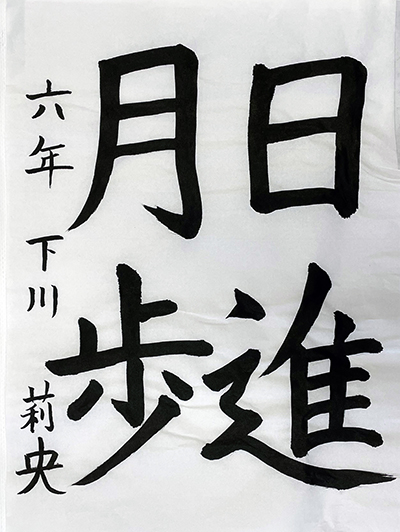 日進
月歩
六年 下川 莉央